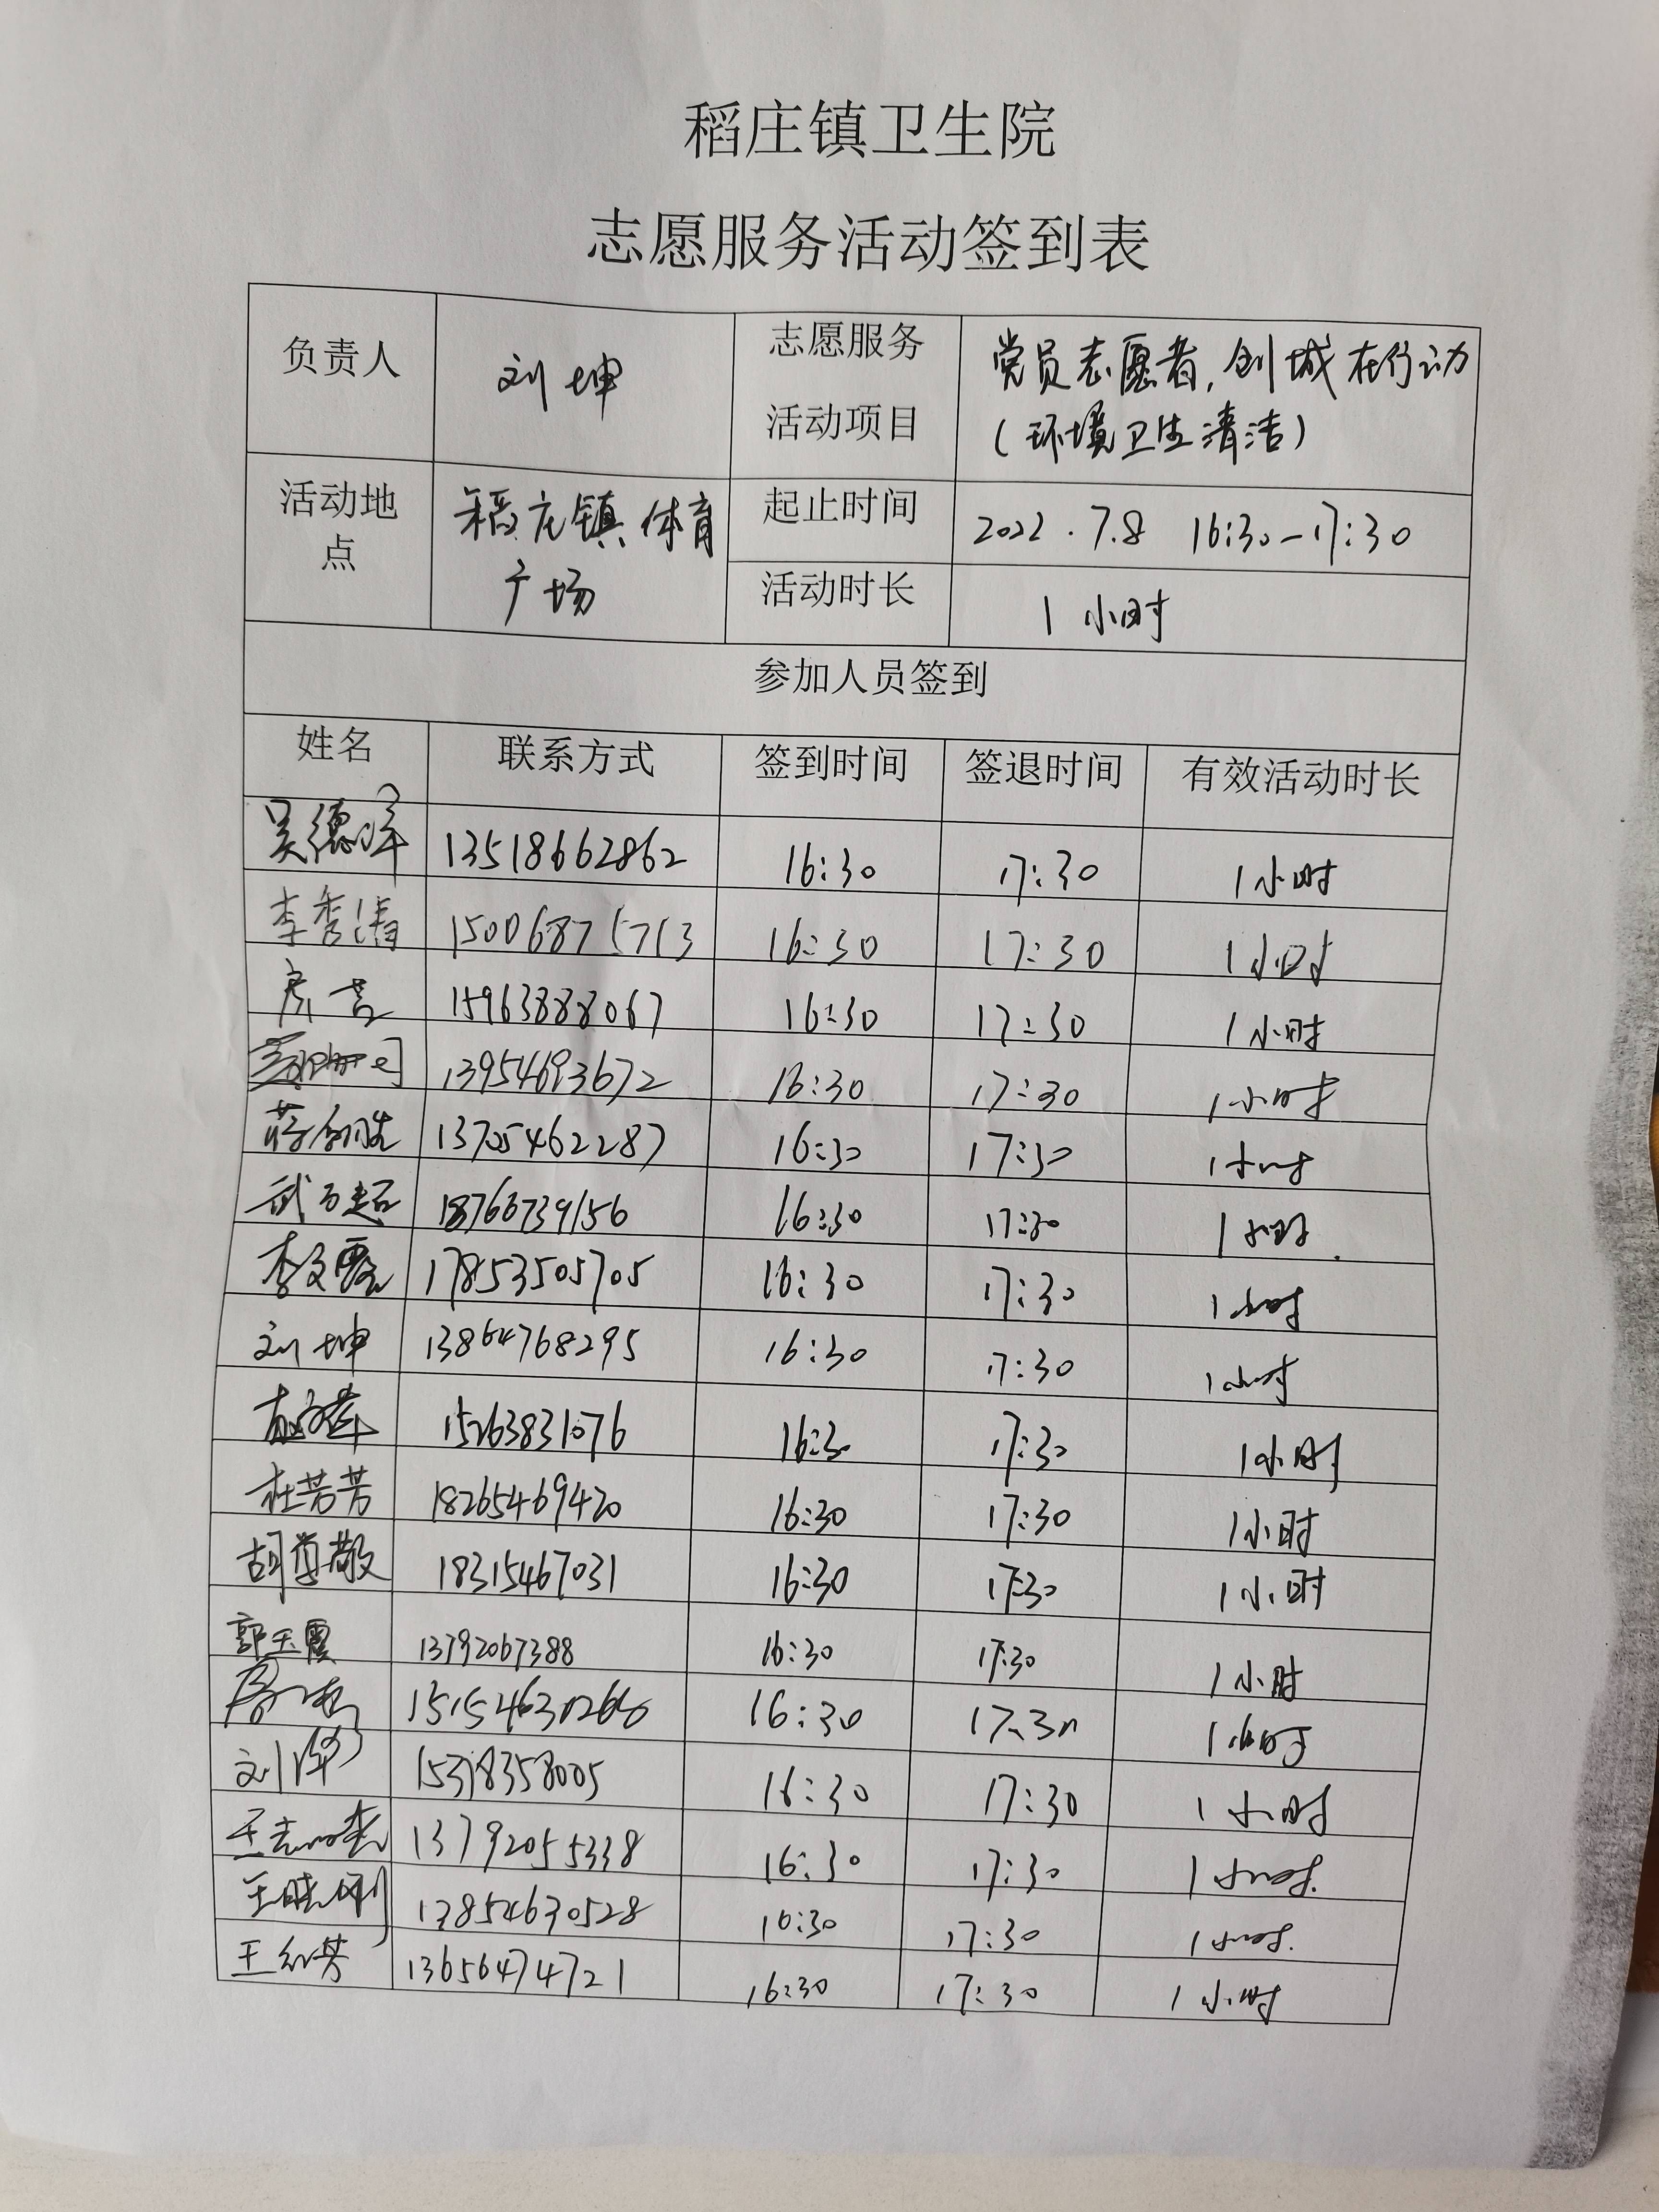 稻庄镇卫生院
志愿服务活动签到表
负责人 刘坤 志愿服务活动项目 党员志愿者,创城在行动
(环境卫生清洁)
活动地点 稻庄镇体育广场 起止时间 2022.7.8 16:30-17:30
活动时长 1小时
参加人员签到
姓名 联系方式 签到时间 签退时间 有效活动时长
吴德峰 13518662862 16:30 17:30 1小时
李秀清 15006875713 16:30 17:30 1小时
15963888067 16:30 17:30 1小时
13954693672 16:30 17:30 1小时
13705462287 16:30 17:30 1小时
武万超 18766739156 16:30 17:30 1小时.
李文霞 17853505705 16:30 17:30 1小时
刘坤 13864768295 16:30 17:30 1小时
15263831076 16:30 17:30 1小时
杜芳芳 18265469420 16:30 17:30 1小时
胡尊敬 18315467031 16:30 17:30 1小时
郭玉霞 13792067388 16:30 17:30 1小时
16:30 17:30 1小时
刘萍 15318358005 16:30 17:30 1小时
13792055338 16:30 17:30 1小时.
王晓刚 13854630528 16:30 17:30 1小时.
王红芳 13656474721 16:30 17:30 1小时